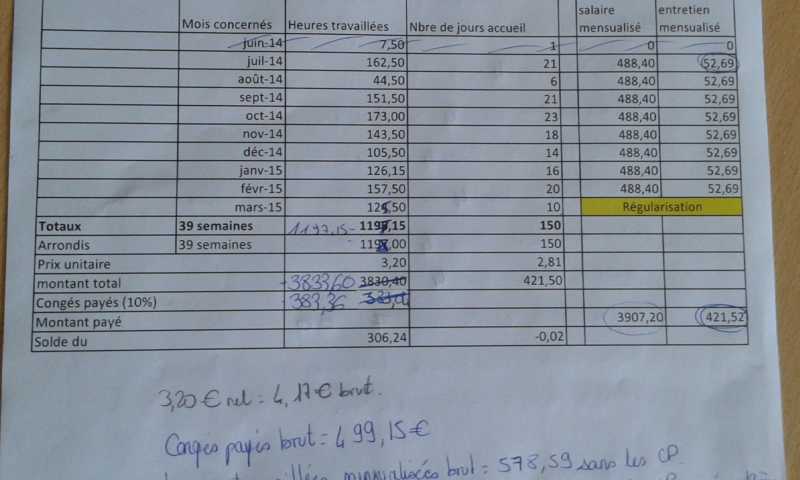 salaire entretien
Mois concernés Heures travaillées Nbre de jours accueil mensualisé mensualisé
juin-14 7,50 1 0 0
juil-14 162,50 21 488,40 52,69
août-14 44,50 6 488,40 52,69
sept-14 151,50 21 488,40 52,69
oct-14 173,00 23 488,40 52,69
nov-14 143,50 18 488,40 52,69
déc-14 105,50 14 488,40 52,69
janv-15 126,15 16 488,40 52,69
févr-15 157,50 20 488,40 52,69
mars-15 10 Régularisation
Totaux 39 semaines 1197,15 150
Arrondis 39 semaines 150
Prix unitaire 3,20 2,81
montant total 3833,60 3830,40 421,50
Congés payés (10%) 383,36
Montant payé 3907,20 421,52
Solde du 306,24 -0,02
3,20 € net = 4,17 € brut.
Congés payés brut = 499,15 €
brut = 578,59 sans les CP.